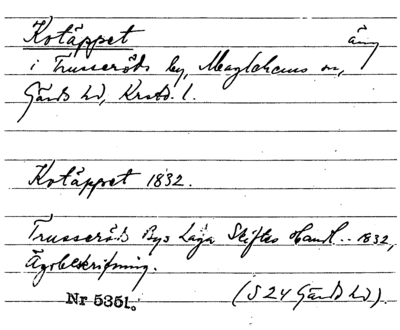 Kotäppet äng
i Trusseröds by, Maglehems sn,
Gärds hd, Krstd. l.
Kotäppet 1832.
Trusseröds Bys Laga Skiftes Handl.. 1832,
Ägobeskrifning.
(S 24 Gärds hd).
Nr 5351.